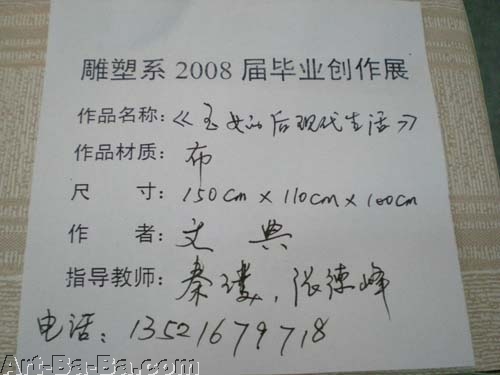 雕塑系 2008 届毕业创作展
作品名称：《玉女的后现代生活》
作品材质：布
尺 寸：150cm × 110cm × 100cm
作 者：文 典
指导教师：秦璞，张德峰
电话：13521679718
Art-Ba-Ba.com